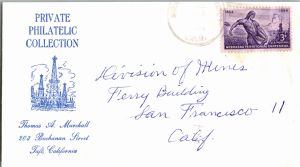 PRIVATE
PHILATELIC
COLLECTION
Thomas A. Marshall
202 Buchanan Street
Taft, California
1854 1954
3¢
NEBRASKA TERRITORIAL CENTENNIAL
Division of Mines
Ferry Building
San Francisco 11
Calif.